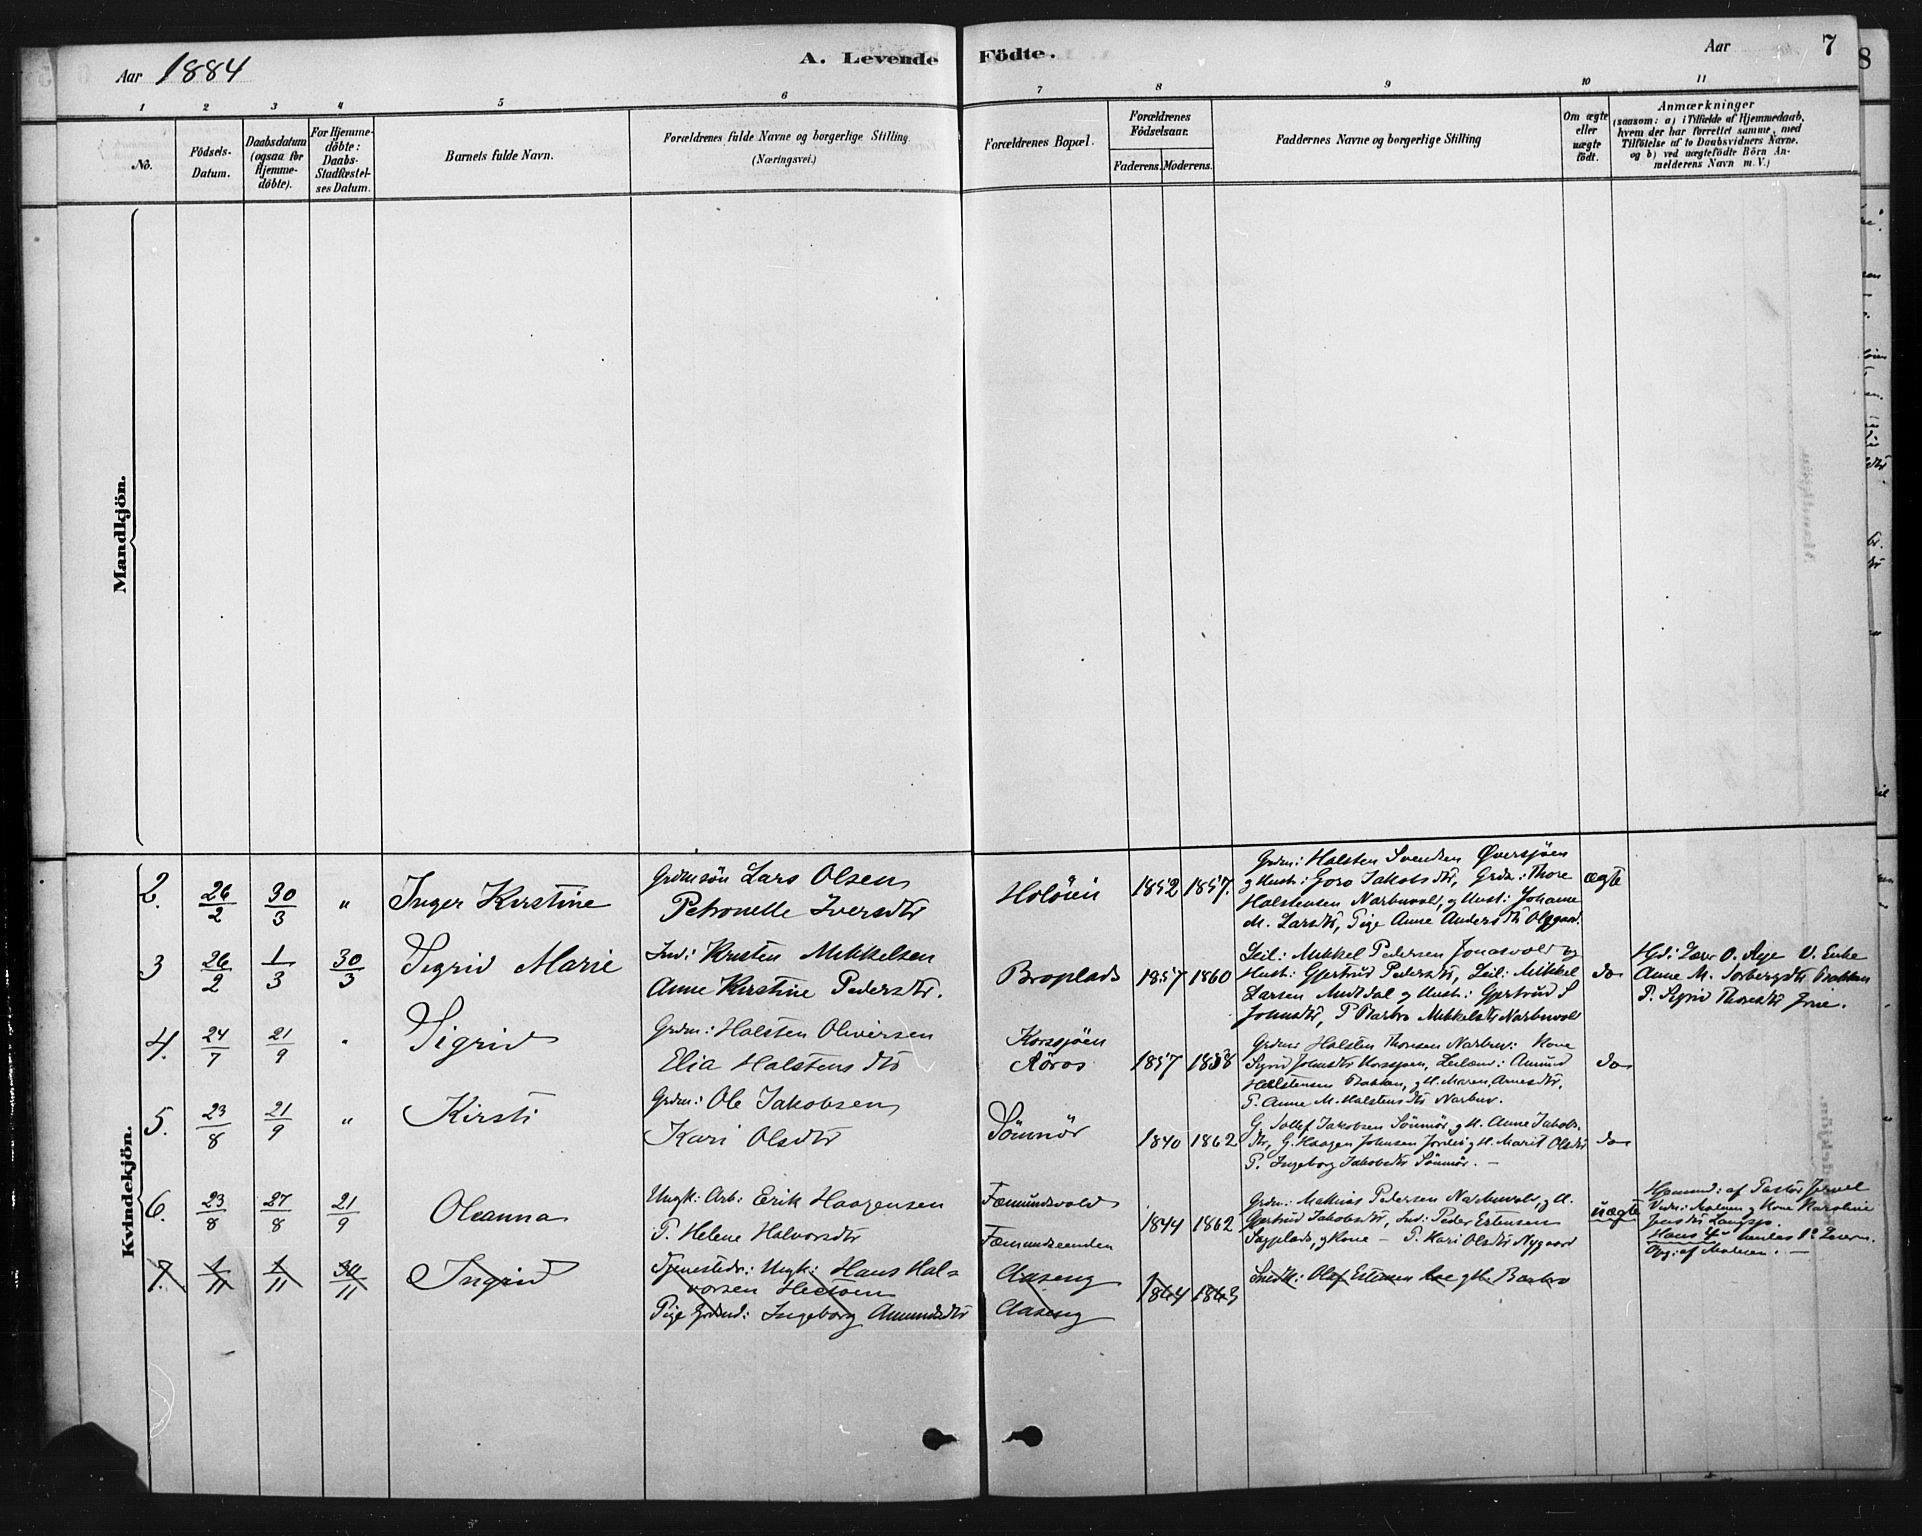 Aar 1884
A. Levende Födte.
Aar
7
8
1 2 3 4 5 6 7 8 9 10 11
No.
Födsels-
Datum.
Daabsdatum
(ogsaa for
Hjemme-
döbte).
For Hjemme-
döbte:
Daabs-
Stadfæstel-
ses Datum.
Barnets fulde Navn.
Forældrenes fulde Navne og borgerlige Stilling
(Næringsvei.)
Forældrenes Bopæl.
Forældrenes
Födselsaar.
Faderens. Moderens.
Faddernes Navne og borgerlige Stilling
Om ægte
eller
uægte
födt.
Anmærkninger
(saasom: a) i Tilfælde af Hjemmedaab,
hvem der har forrettet samme, med
Tilföielse af to Daabsvidners Navne,
og b) ved uægtefödte Börn An-
melderens Navn m. V.)
Mandkjön.
Kvindekjön.
2. 26/2 30/3 " Inger Kirstine
Grdmsön Lars Olsen
Petronelle Iversdtr
Holöien
1852 1857.
Grdm: Halsten Svendsen Översjöen
g Hust: Goro Jakobsdtr, Grdm: Thore
Halstensen Narbuvol, g Hust: Johanne
M. Larsdtr, Pige Anne Andersdtr
ægte
3 26/2 1/3 30/3 Sigrid Marie
Ind: Kristen Mikkelsen
Anne Kirstine Pedersdtr.
Broplads
1857 1860
Leil: Mikkel Pedersen Jonasvold og
Hust: Gjertrud Pedersdtr, Leil: Mikkel
Larsen g Hust: Gjertrud
Johnsdtr, P Barbro Mikkelsdtr Narbuvol
do
Hjd: O. Aye
Anne M.
P. Sigrid Thoresdtr
4. 24/7 21/9 " Sigrid
Grdm: Halsten Oliversen
Elia Halstensdtr
Korssjöen
Röros
1857 1858
Grdm: Halsten Thoresen Narbuv: Kone
Sigrid Johnsdtr Korssjöen, Amund
Halstensen Bakken, g H. Maren Arnesdtr,
P. Anne M. Halstensdtr Narbuv.
do
5. 23/8 21/9 " Kirsti
Grdm: Ole Jakobsen
Kari Olsdtr
Sömmör
1840 1862
G. Jakobsen Sömmör, g H. Anne Jakobs-
dtr, G. Haagen Johnsen g H. Marit Olsdtr
P. Ingeborg Jakobsdtr Sömmör. -
do
6. 23/8 27/8 21/9 Oleanna
Ungk: Arb: Erik Haagensen
P. Helene Halvorsdtr
Fæmundsvold
Fæmundseenden
1844 1862
Grdm: Mathias Pedersen Narbuvol, g H.
Gjertrud Jakobsdtr, Ind: Peder Estensen
g Kone - P. Kari Olsdtr Nygaard
uægte
Hjemmd: af Pastor
g Kone Karoline
Hans 4de
Opg: af
7. 1/11 1/11 30/11 Ingrid
Tjenestedr: Ungk: Hans Hal-
vorsen
Pige Grdmd: Ingeborg Amundsdtr
Aaseng
Aaseng
1864 1863
Snedk: Olaf Estensen g H. Barbro